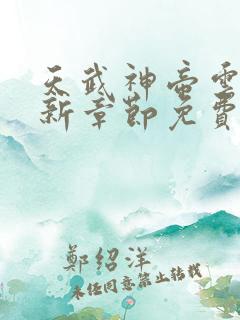 天武神帝雪
新章節免費
鄭紹洋
未经同意禁止转载